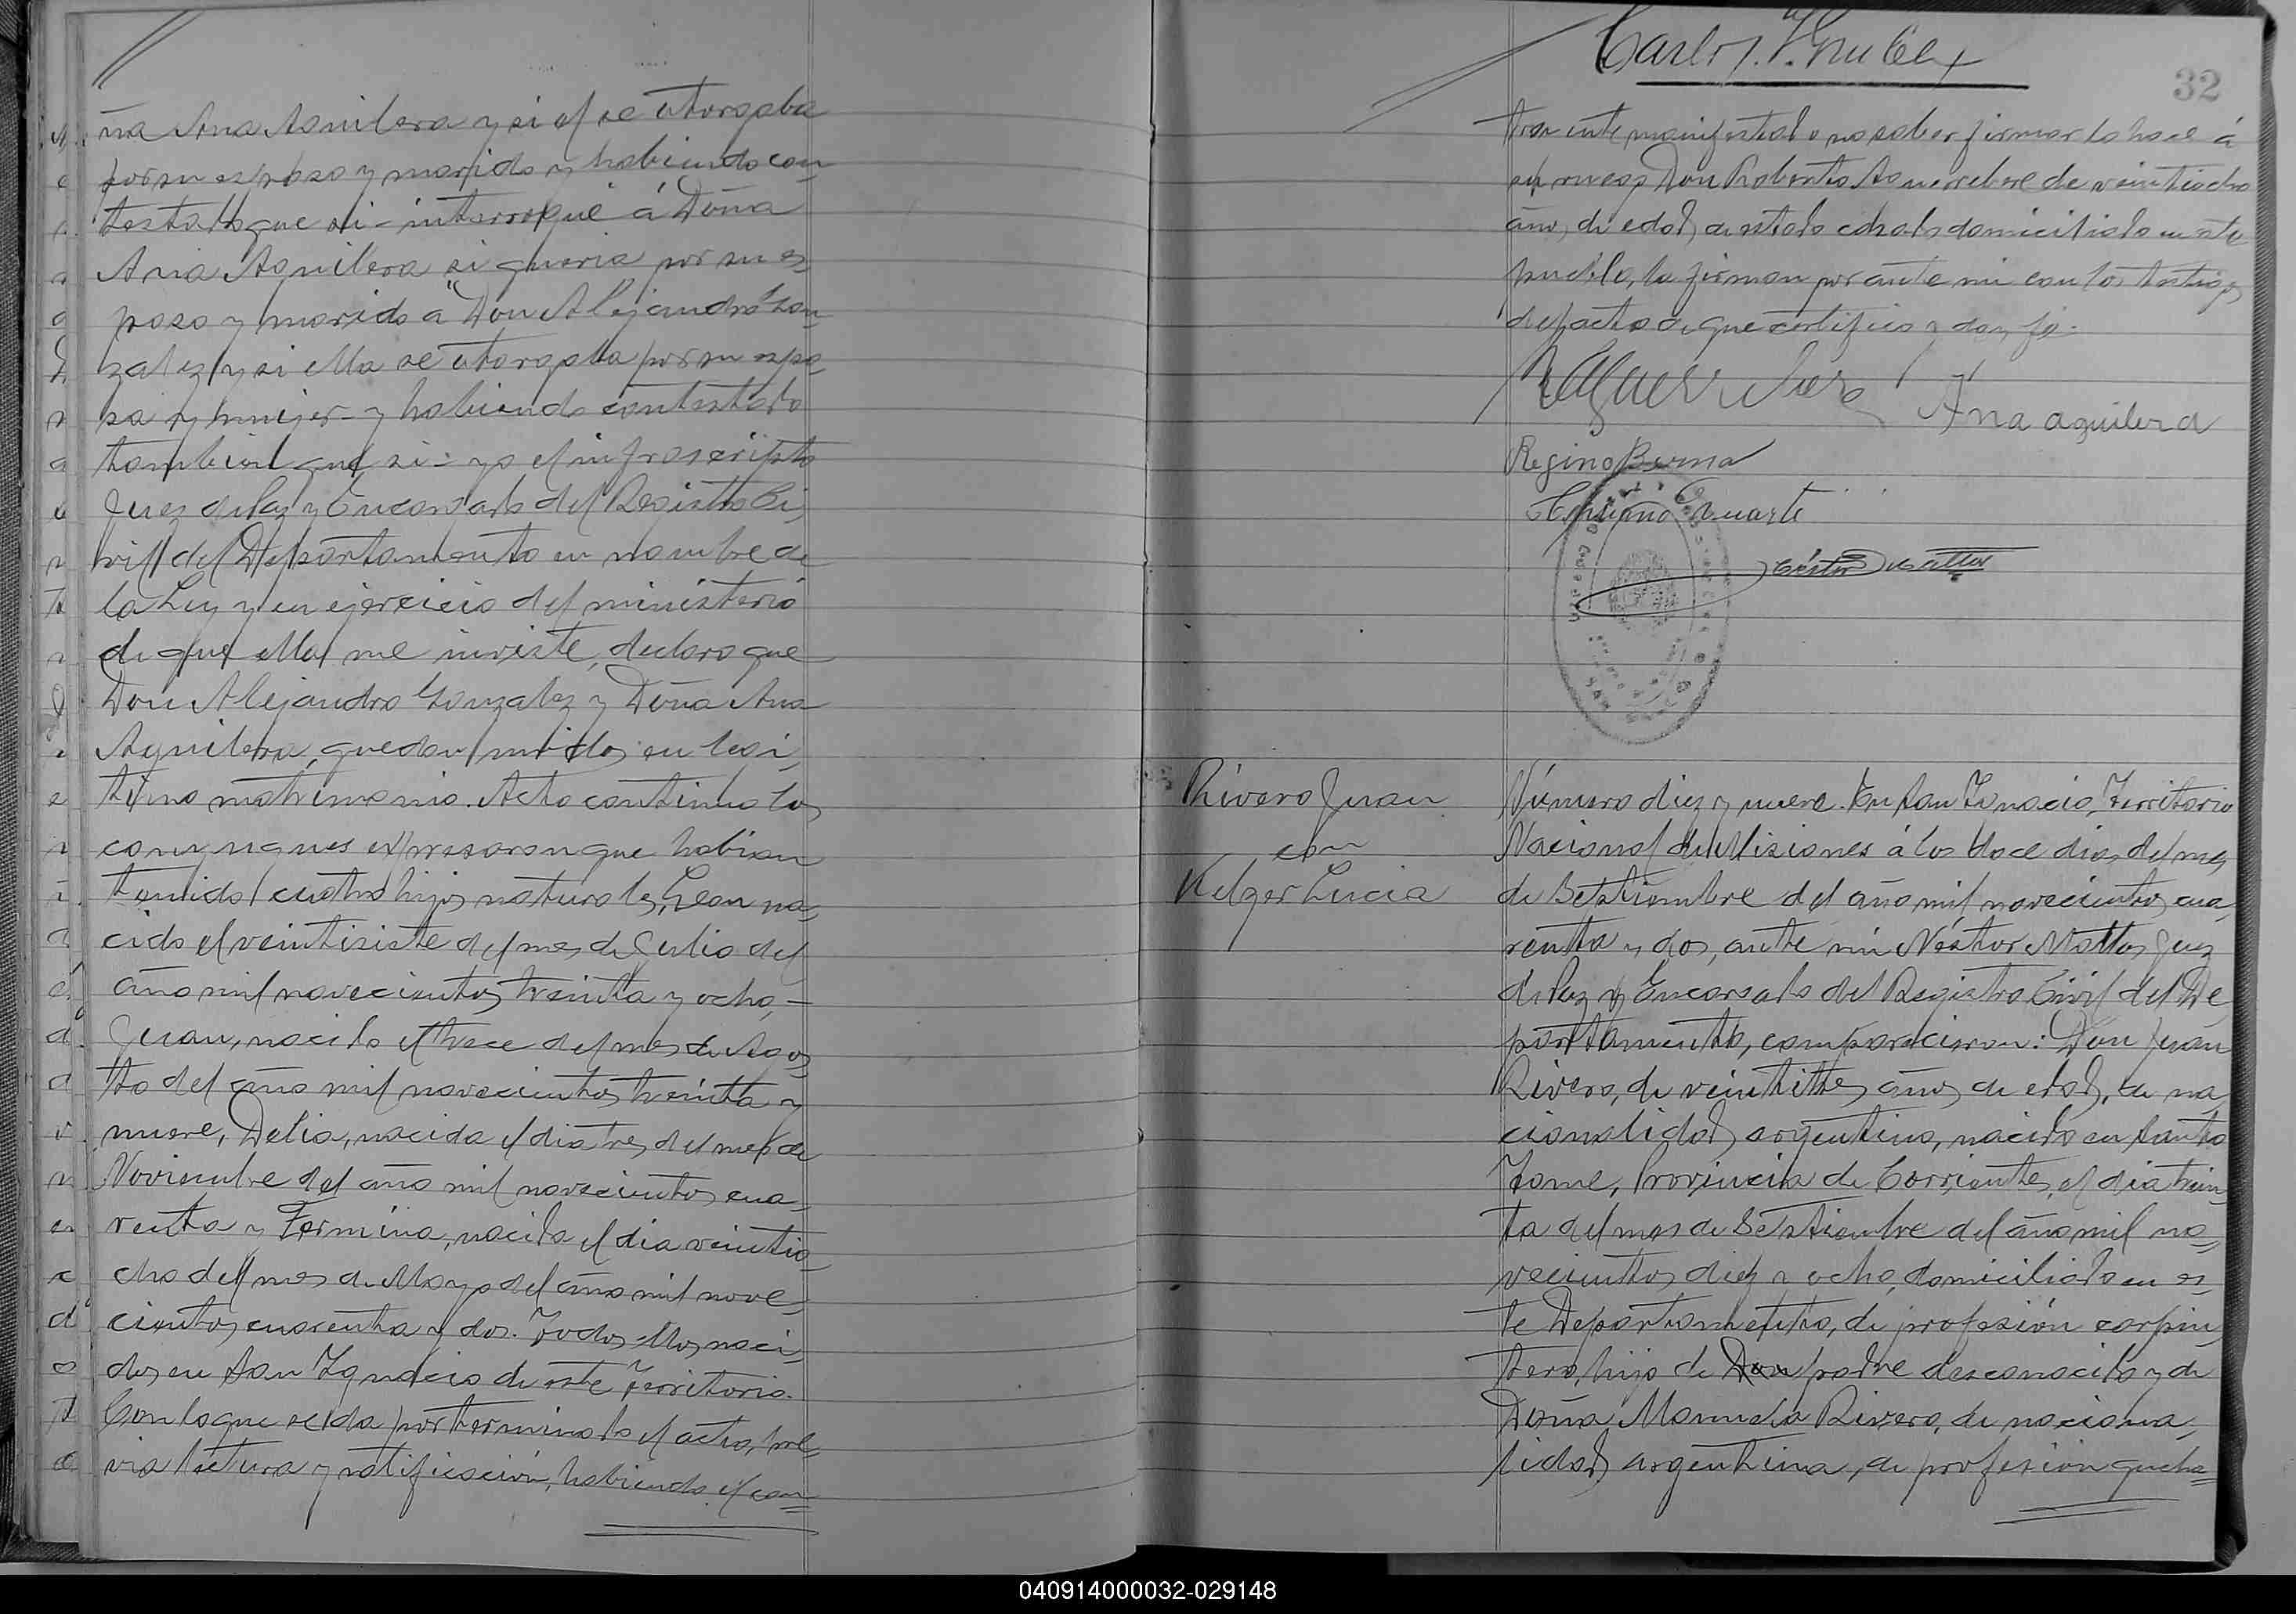 ña Ana Aguilera y si el se otorgaba
por su esposo y marido y habiendo con
testado que si - interrogué á Doña
Ana Aguilera si queria por su es-
poso y marido a Don Alejandro Gon-
zalez y si ella se otorgaba por su espo-
sa y mujer - y habiendo contestado
tambien que si - yo el infrascripto
Juez de Paz y Encargado del Registro Ci-
vil del Departamento en nombre de
la Ley y en ejercicio del ministerio
de que ella me inviste, declaro que
Don Alejandro Gonzalez y Doña Ana
Aguilera, quedan unidos en legi-
timo matrimonio. Acto continuo los
conyugues expresaron que habian
tenido cuatro hijos naturales, na-
cido el veintisiete del mes de Julio del
año mil novecientos treinta y ocho, -
Juan, nacido el trece del mes de Agos-
to del año mil novecientos treinta y
nueve, Delia, nacida el dia tres del mes de
Noviembre del año mil novecientos cua-
renta y Fermina, nacida el dia veintio-
cho del mes de Mayo del año mil nove-
cientos cuarenta y dos. Todos ellos naci-
dos en San Ignacio de este Territorio.
Con lo que se da por terminado el acto, pre-
via lectura y ratificación, habiendo el con-
Carlos
32
trayente manifestado no saber firmar lo hace á
su ruego Don Roberto Aguerrebere de veintiocho
años de edad, de estado casado domiciliado en este
pueblo, lo firman por ante mi con los testigos
del acto de que certifico y doy fe.
Ana aguilera
Regino
Duarte
Néstor Mattos
Rivero Juan
con
Kelzer Lucia
Número diez y nueve. En San Ignacio, Territorio
Nacional de Misiones á los doce dias del mes
de Setiembre del año mil novecientos cua-
renta y dos, ante mi Néstor Mattos Juez
de Paz y Encargado del Registro Civil del De
partamento, comparecieron: Don Juan
Rivero, de veintitres años de edad, de na
cionalidad argentino, nacido en Santo
Tome, Provincia de Corrientes, el dia trein-
ta del mes de Setiembre del año mil no-
vecientos diez y ocho, domiciliado en es-
te Departamento, de profesión carpin-
tero, hijo de Don padre desconocido y de
Doña Manuela Rivero, de naciona-
lidad argentina, de profesión queha-
040914000032-029148